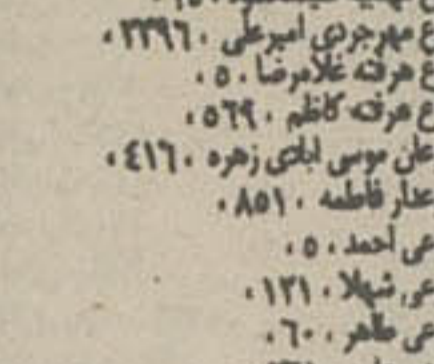 ع مهرجردی امیرعلی ۰ ۳۳۹۶ ۰
ع هرفته غلامرضا ۰ ۵ ۰
ع هرفته کاظم ۰ ۵۶۹ ۰
عان موسی ابادی زهره ۰ ٤۱۶ ۰
عدار فاطمه ۰ ۸۵۱ ۰
عی احمد ۰ ۵ ۰
عی شهلا ۰ ۱۳۱ ۰
عی طاهر ۰ ۶۰ ۰